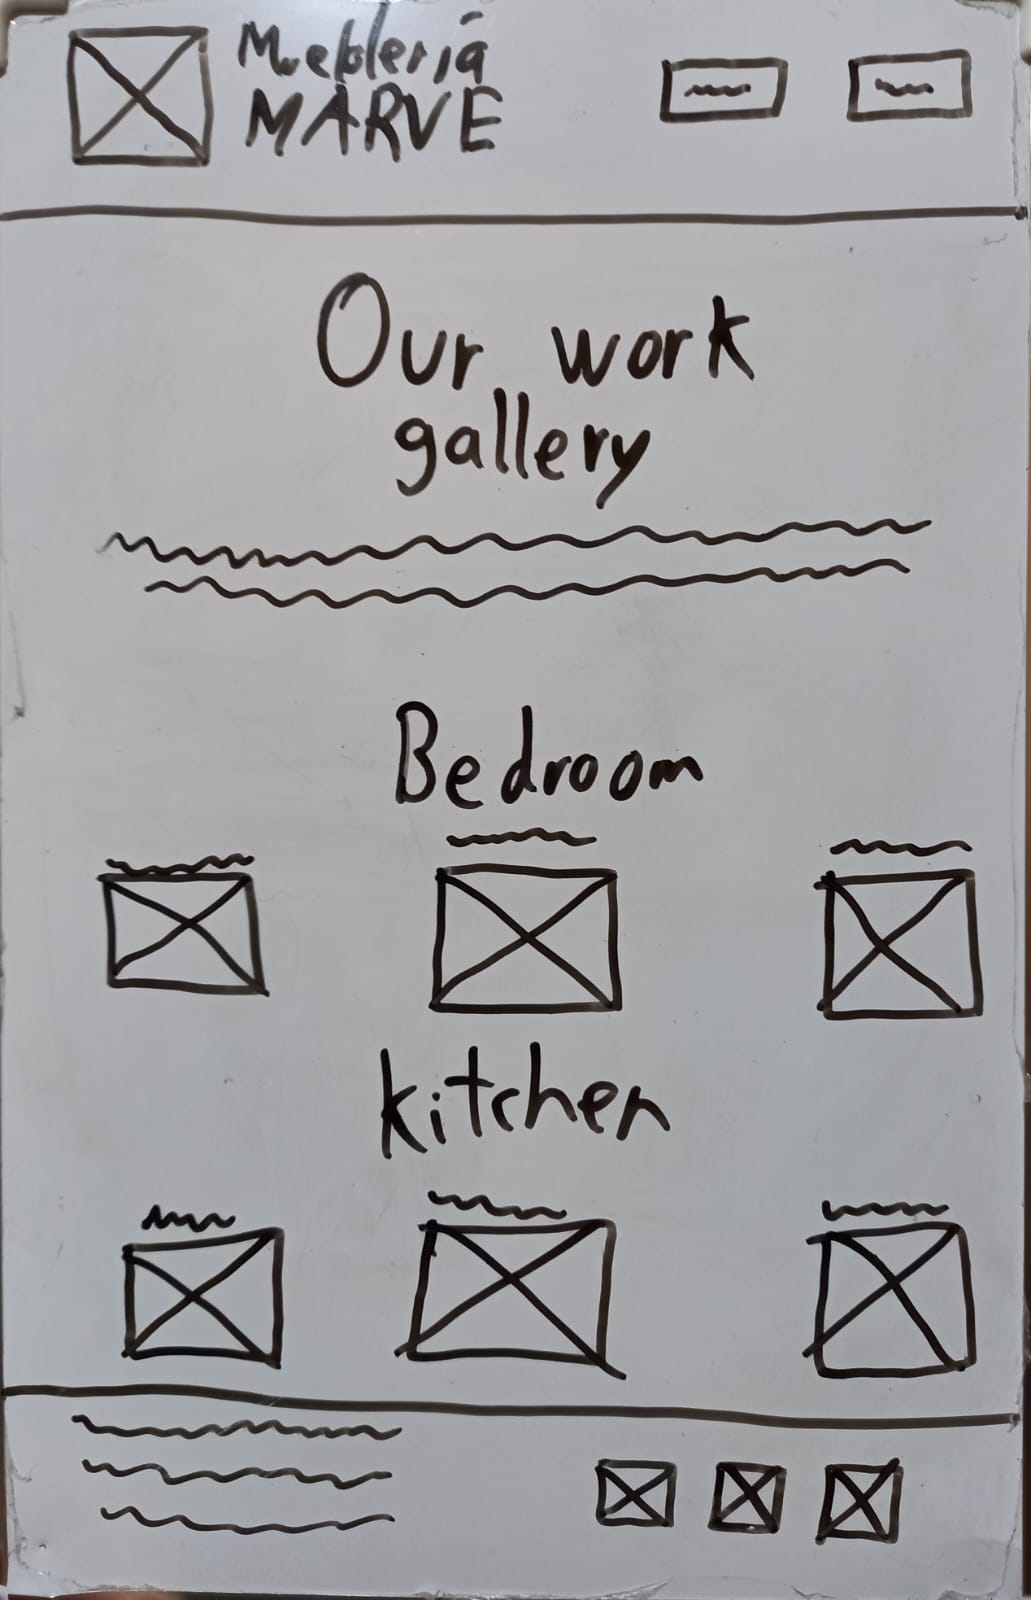 Mueblería
MARVE
Our work
gallery
Bedroom
kitchen